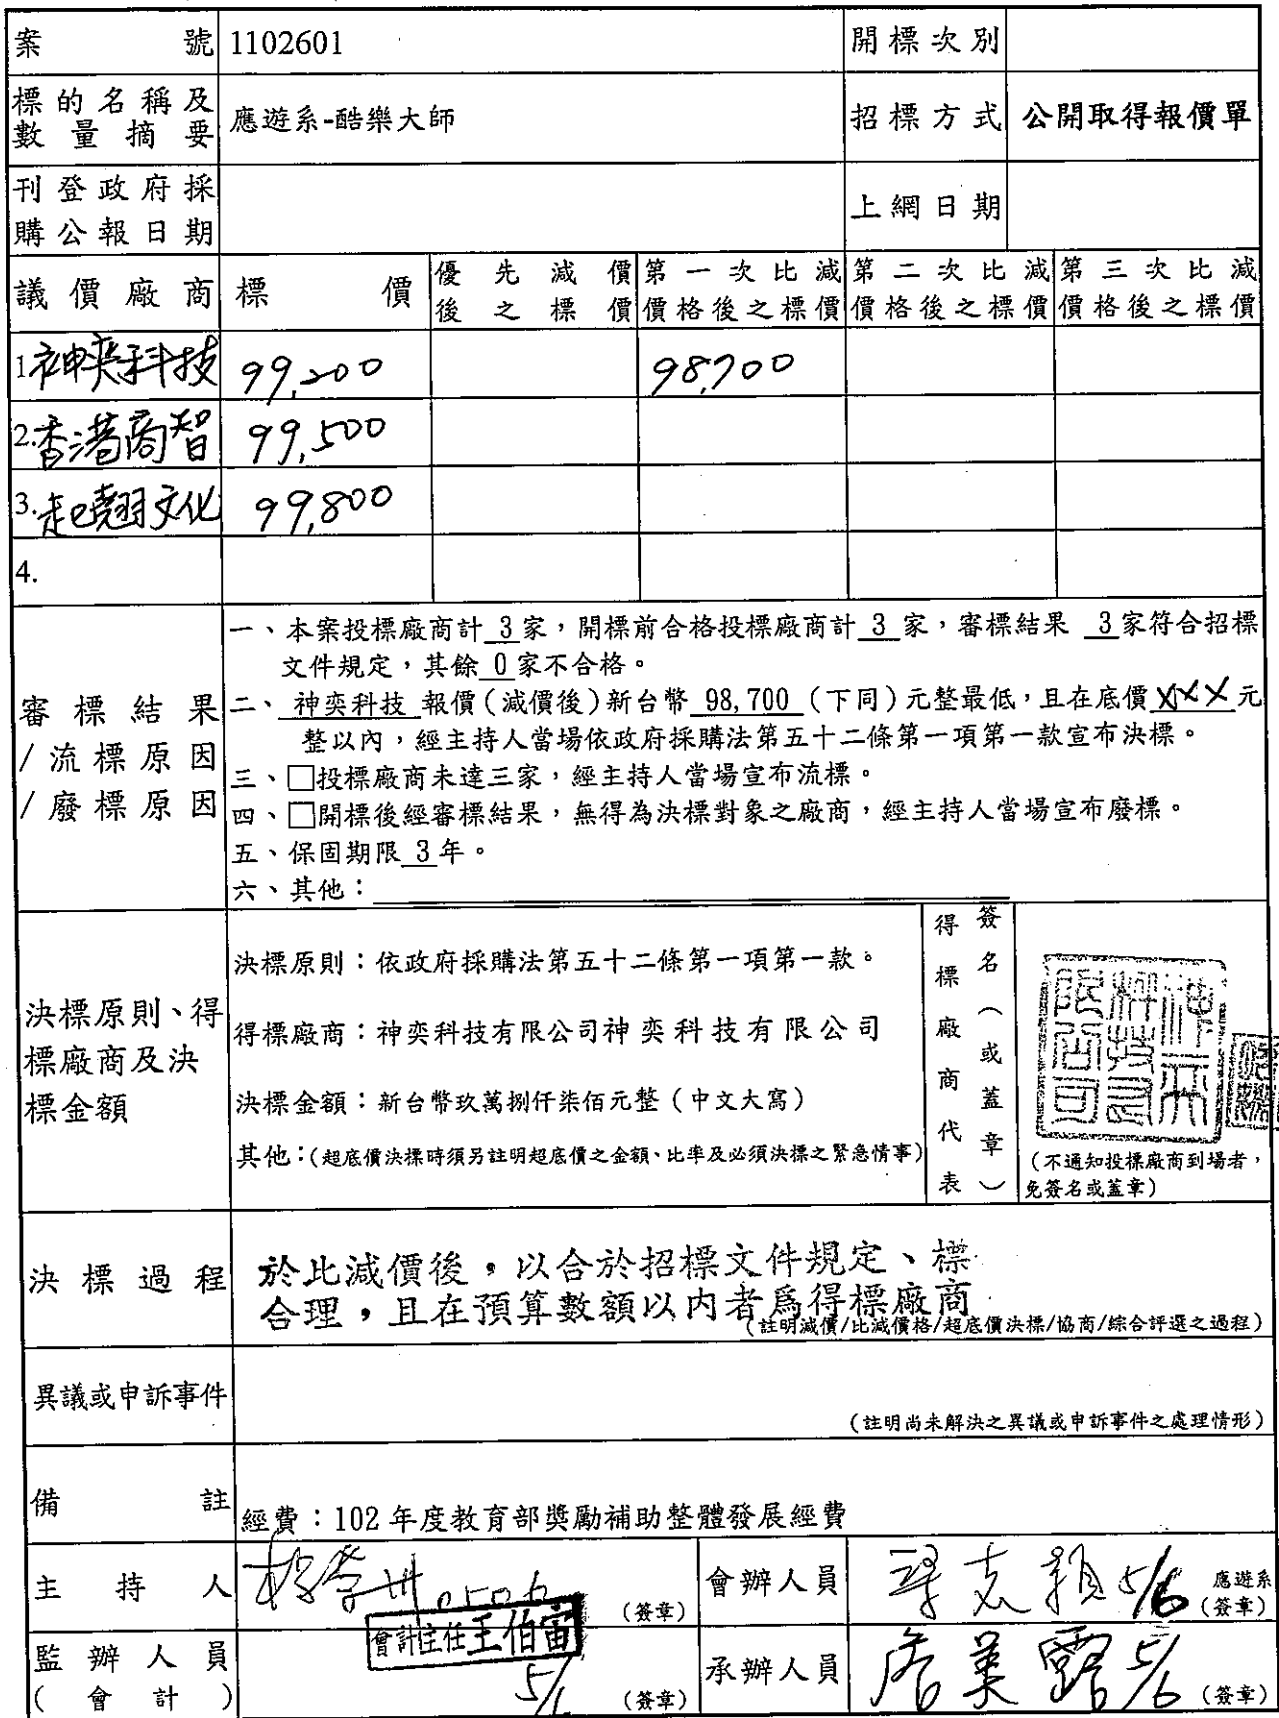 案號 1102601 開標次別
標的名稱及數量摘要 應遊系-酷樂大師 招標方式 公開取得報價單
刊登政府採購公報日期 上網日期
議價廠商 標價 優先減價後之標價 第一次比減價格後之標價 第二次比減價格後之標價 第三次比減價格後之標價
1.神奕科技 99,200 98,700
2.香港商智 99,500
3.起翹文化 99,800
4.
審標結果/流標原因/廢標原因
一、本案投標廠商計 3 家，開標前合格投標廠商計 3 家，審標結果 3 家符合招標
文件規定，其餘 0 家不合格。
二、神奕科技 報價(減價後)新台幣 98,700 (下同)元整最低，且在底價 XXX 元
整以內，經主持人當場依政府採購法第五十二條第一項第一款宣布決標。
三、□投標廠商未達三家，經主持人當場宣布流標。
四、□開標後經審標結果，無得為決標對象之廠商，經主持人當場宣布廢標。
五、保固期限 3 年。
六、其他：
決標原則、得標廠商及決標金額
決標原則：依政府採購法第五十二條第一項第一款。
得標廠商：神奕科技有限公司神奕科技有限公司
決標金額：新台幣玖萬捌仟柒佰元整（中文大寫）
其他：(超底價決標時須另註明超底價之金額、比率及必須決標之緊急情事)
得標廠商代表
簽名（或蓋章）
神奕科技有限公司
（不通知投標廠商到場者，
免簽名或蓋章）
決標過程
於比減價後，以合於招標文件規定、標
合理，且在預算數額以內者為得標廠商
(註明減價/比減價格/超底價決標/協商/綜合評選之過程)
異議或申訴事件
(註明尚未解決之異議或申訴事件之處理情形)
備註 經費：102 年度教育部獎勵補助整體發展經費
主持人 0506 (簽章) 會辦人員 5/6 應遊系
(簽章)
監辦人員
(會計) 會計主任王伯宙 (簽章) 承辦人員 詹美露 5/6 (簽章)